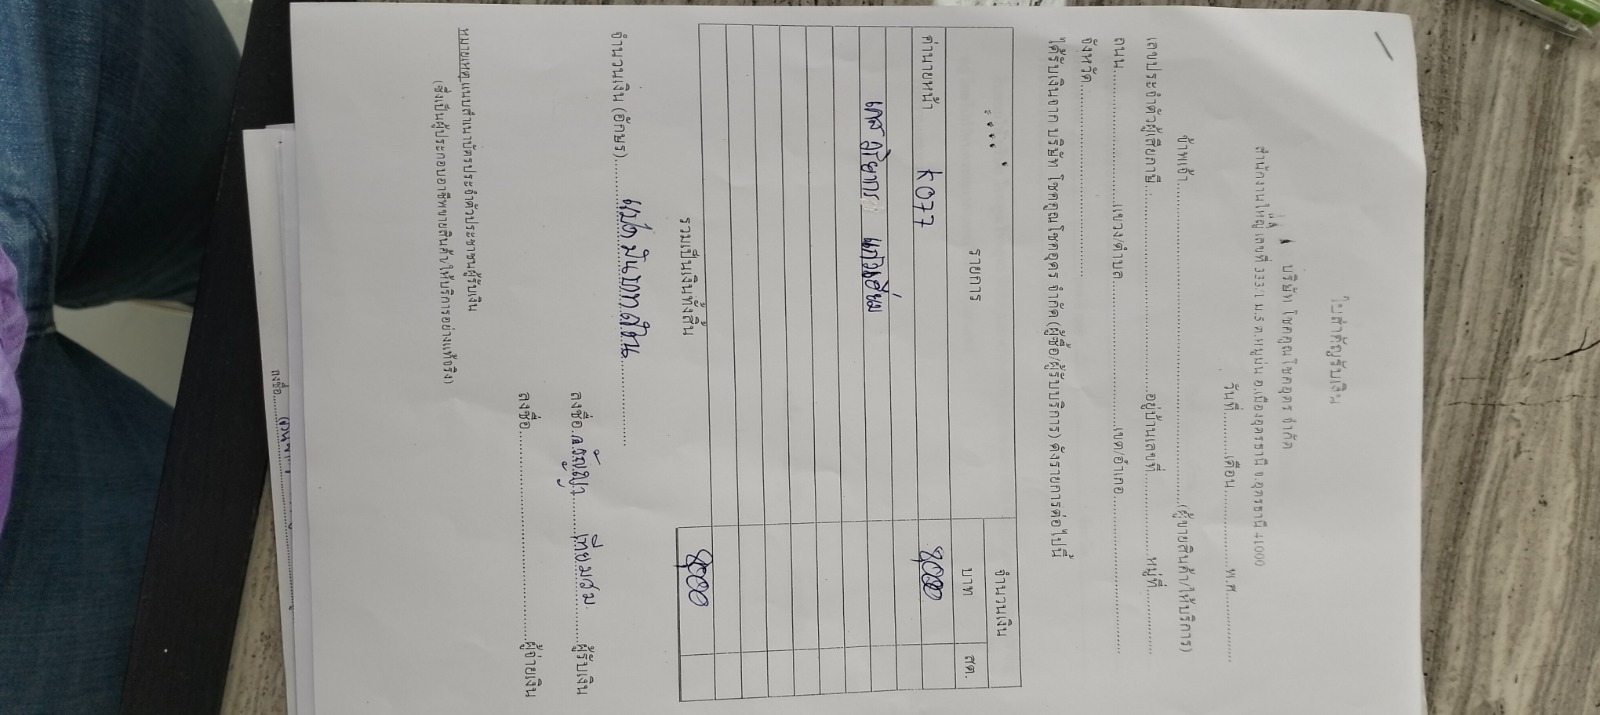 ใบสำคัญรับเงิน
บริษัท โชคคูณโชคอุดร จำกัด
สำนักงานใหญ่ เลขที่ 333/1 ม.5 ต.หมูม่น อ.เมืองอุดรธานี จ.อุดรธานี 41000
วันที่...........เดือน.....................พ.ศ...............
ข้าพเจ้า.......................................................................(ผู้ขายสินค้า/ให้บริการ)
เลขประจำตัวผู้เสียภาษี.............................................อยู่บ้านเลขที่.................หมู่ที่...............
ถนน.............................แขวง/ตำบล................................เขต/อำเภอ...................................
จังหวัด.........................................
ได้รับเงินจาก บริษัท โชคคูณโชคอุดร จำกัด (ผู้ซื้อ/ผู้รับบริการ) ดังรายการต่อไปนี้
รายการ จำนวนเงิน
บาท สต.
ค่านายหน้า K077 8,000
รวมเป็นเงินทั้งสิ้น 8,000
จำนวนเงิน (อักษร)......แปดพันบาทถ้วน.................
ลงชื่อ...............เทียมสม.........ผู้รับเงิน
ลงชื่อ..........................................ผู้จ่ายเงิน
หมายเหตุ แนบสำเนาบัตรประจำตัวประชาชนผู้รับเงิน
(ซึ่งเป็นผู้ประกอบอาชีพขายสินค้า/ให้บริการอย่างแท้จริง)
ลงชื่อ